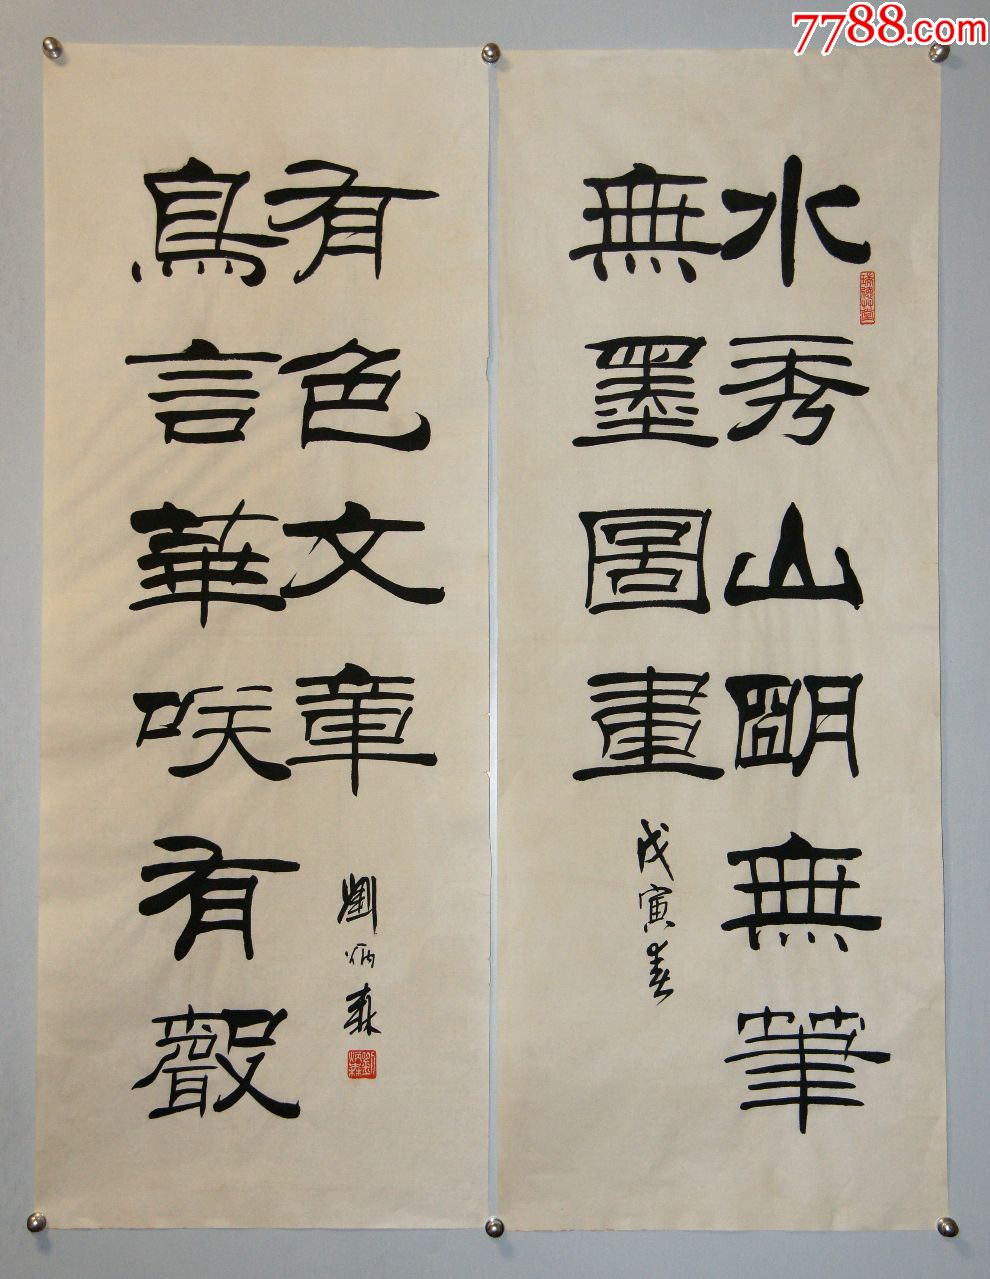 7788.com
水秀山朙無筆
無墨圖畫
戊寅春
鳥言華咲有聲
有色文章
劉炳森
劉炳森